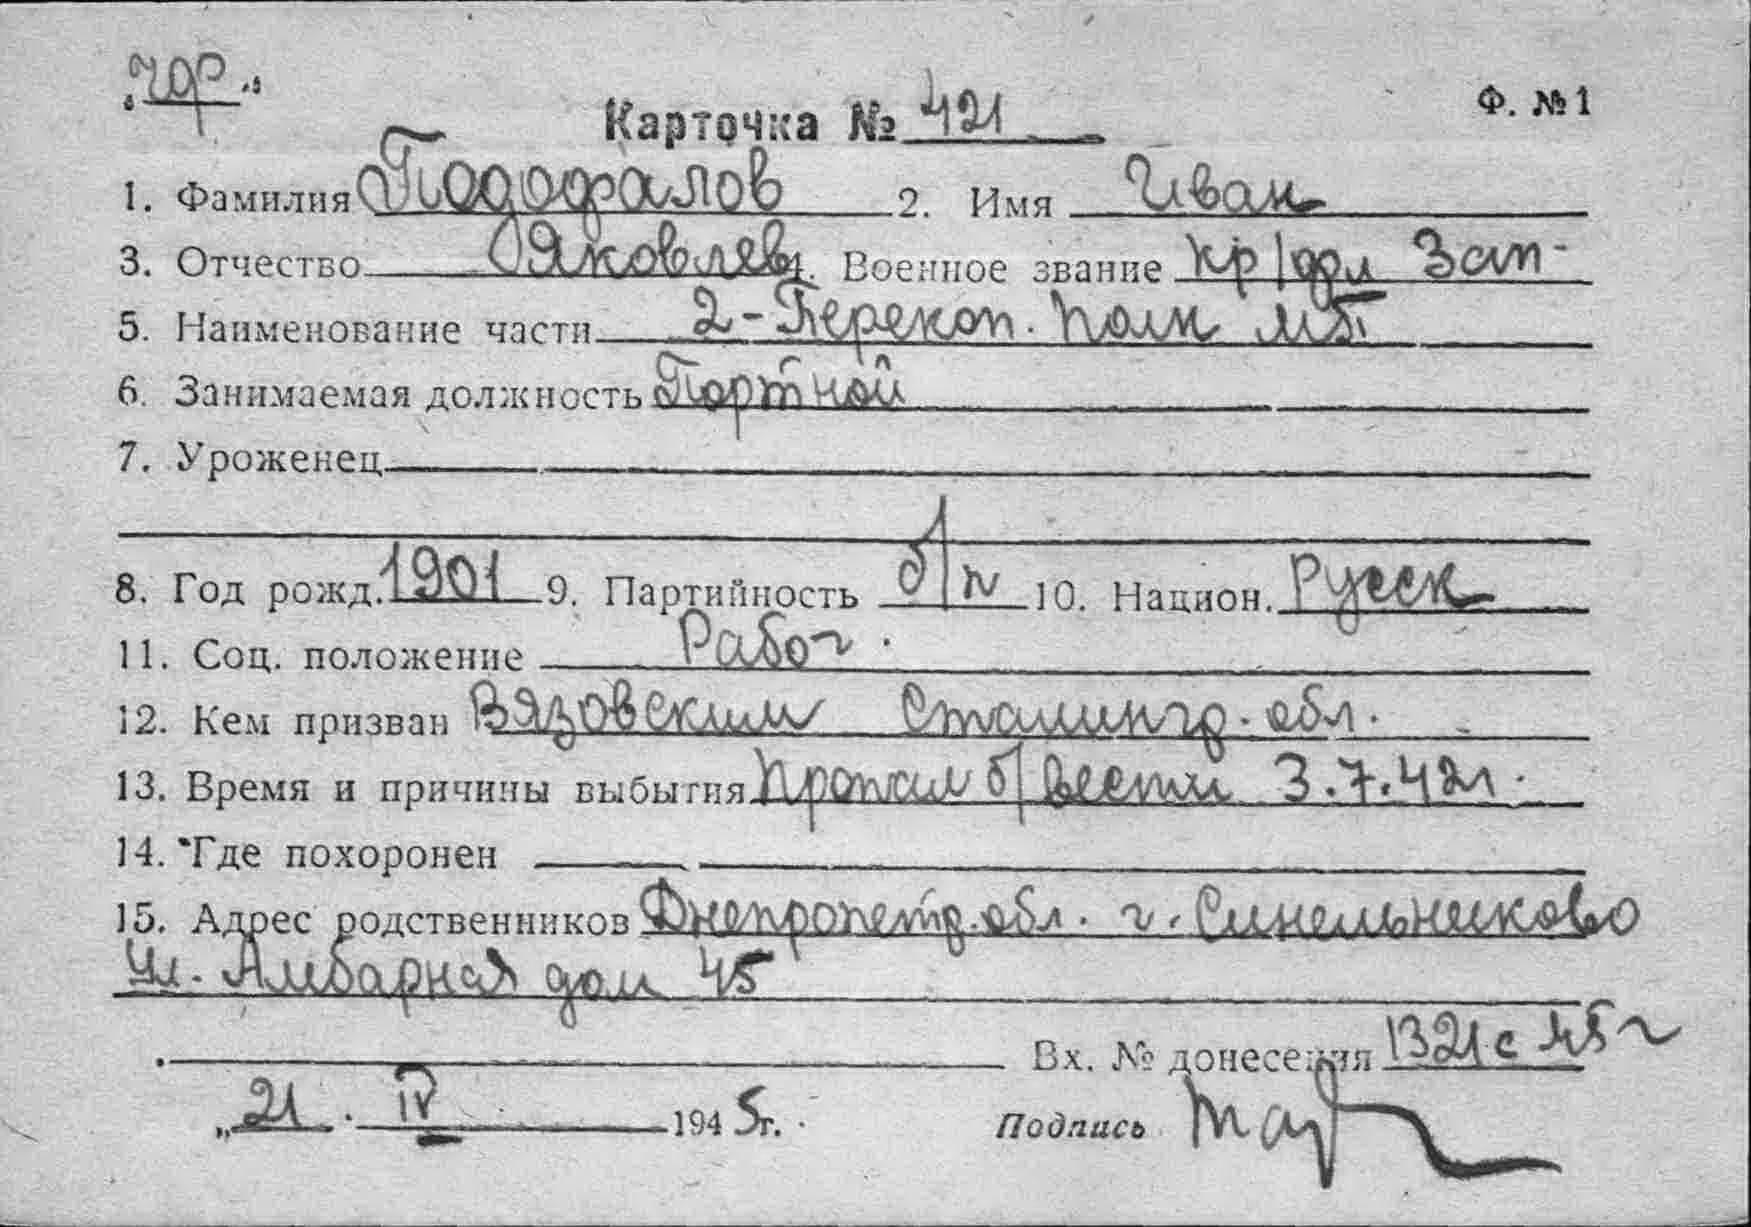 "чер"
Ф. №1
Карточка № 421
1. Фамилия Подофалов 2. Имя Иван
3. Отчество Яковлев. Военное звание кр/фл Зап-
5. Наименование части 2-Перекоп. полк МБ
6. Занимаемая должность Портной
7. Уроженец
8. Год рожд. 1901 9. Партийность б/п 10. Национ. Русск
11. Соц. положение Рабоч.
12. Кем призван Вязовским Сталингр. обл.
13. Время и причины выбытия пропал б/вести 3.7.42г.
14. Где похоронен
15. Адрес родственников Днепропетр. обл. г. Синельниково
Ул. Амбарная дом 45
Вх. № донесения 1321с 45г
„21. IV 1945г.
Подпись